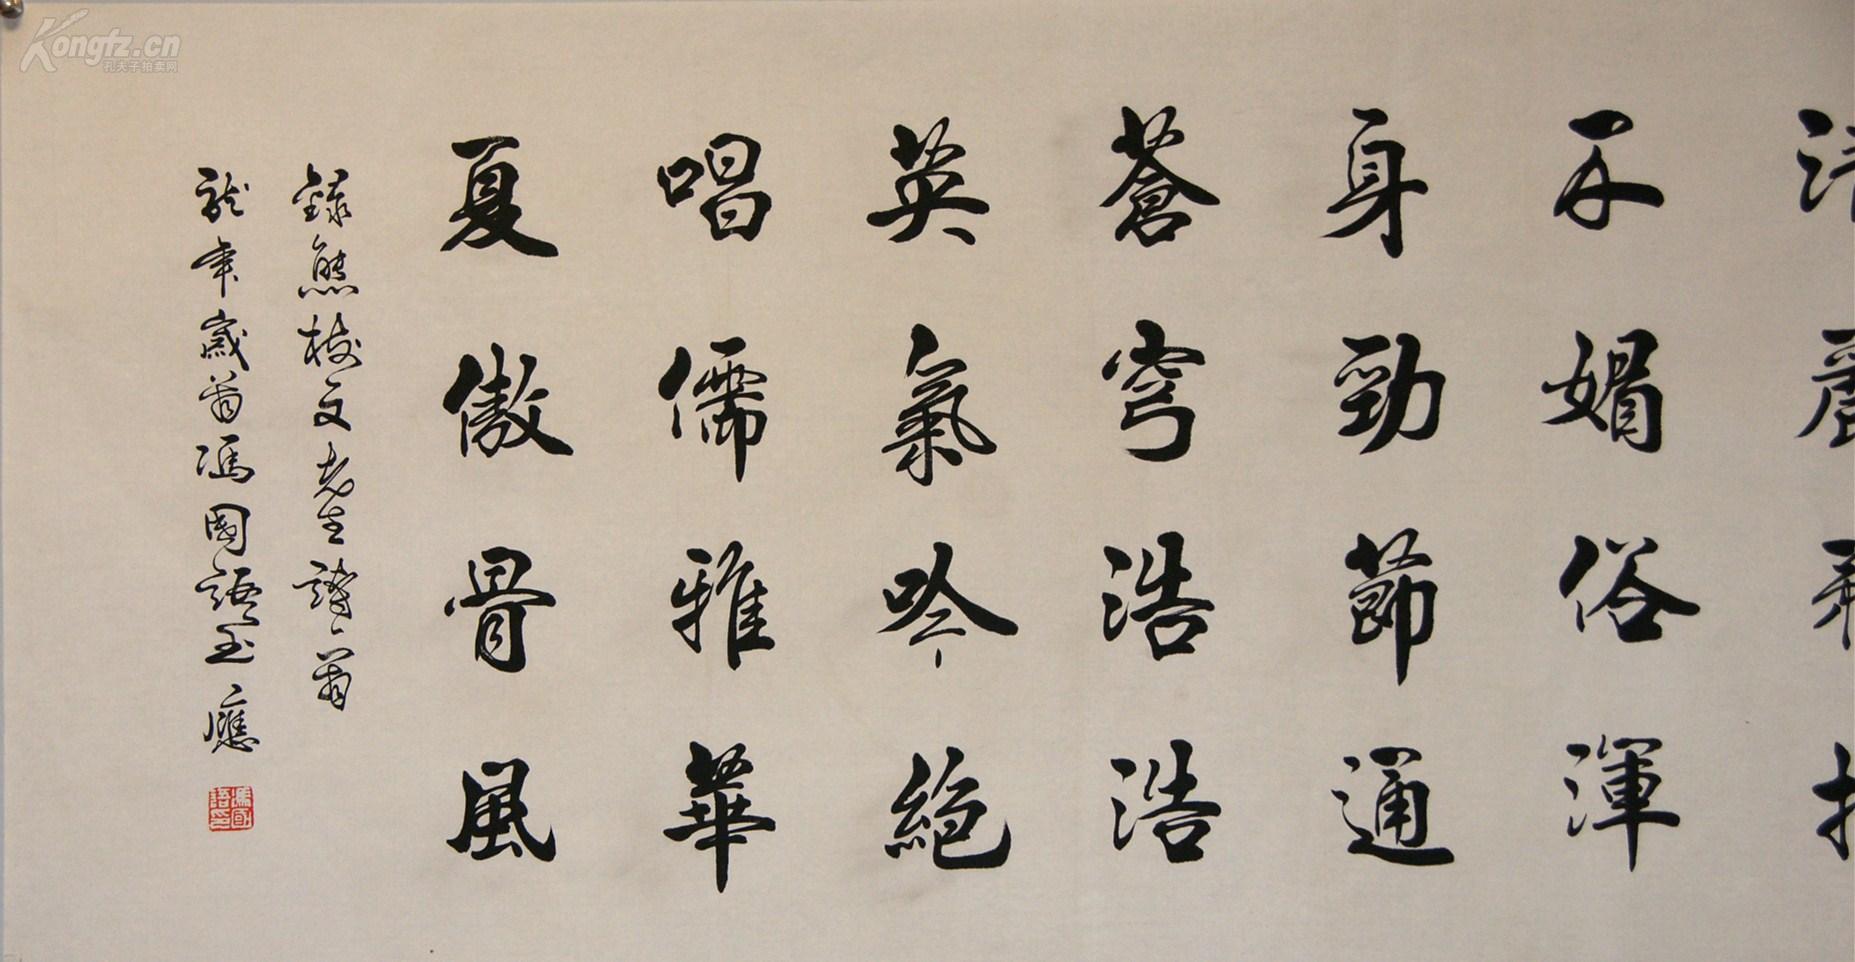 不媚俗渾
身勁節通
蒼穹浩浩
英氣吟絕
唱儒雅華
夏傲骨風
錄熊楚文老生詩一首
龍年歲首馮國語書應
馮國語印
Kongfz.cn
孔夫子拍卖网